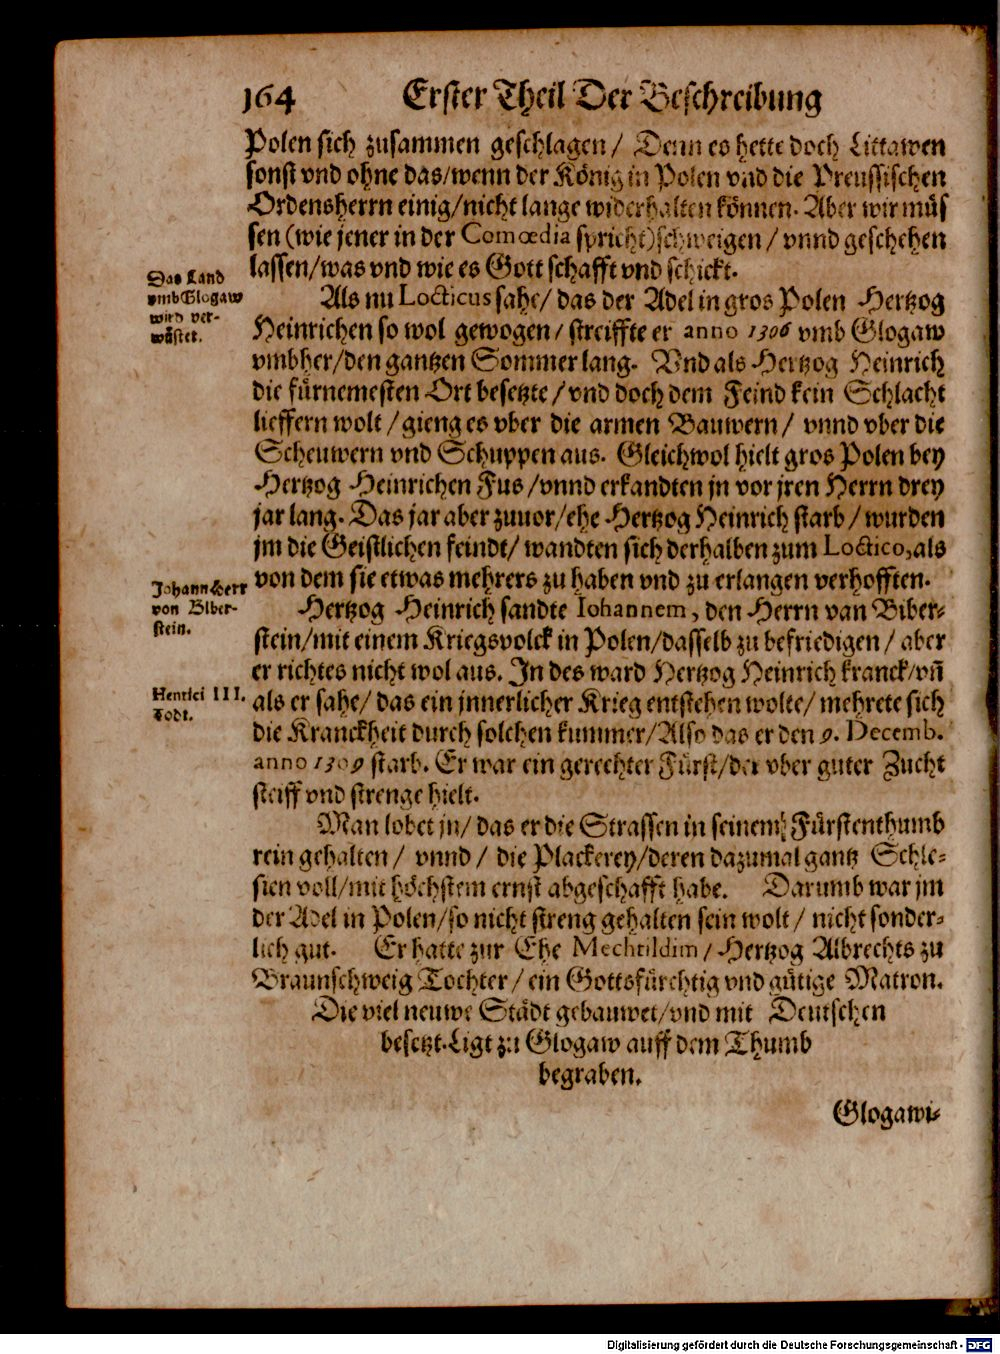 164 Erster Theil Der Beschreibung
Polen sich zusammen geschlagen / Denn es hette doch Littawen
sonst vnd ohne das/wenn der König in Polen vnd die Preussischen
Ordensherrn einig/nicht lange widerhalten können. Aber wir müs
sen (wie jener in der Comœdia spricht)schweigen / vnnd geschehen
lassen/was vnd wie es Gott schafft vnd schickt.
Das Land
vmb Glogaw
wird ver-
wüstet.
Als nu Locticus sahe/ das der Adel in gros Polen Hertzog
Heinrichen so wol gewogen/ streiffte er anno 1306 vmb Glogaw
vmbher/den gantzen Sommer lang. Vnd als Hertzog Heinrich
die fürnemesten Ort besetzte / vnd doch dem Feind kein Schlacht
lieffern wolt / gieng es vber die armen Bauwern / vnnd vber die
Scheuwern vnd Schuppen aus. Gleichwol hielt gros Polen bey
Hertzog Heinrichen Fus /vnnd erkandten jn vor jren Herrn drey
jar lang. Das jar aber zuuor/ehe Hertzog Heinrich starb / wurden
jm die Geistlichen feindt/ wandten sich derhalben zum Loctico,als
von dem sie etwas mehrers zu haben vnd zu erlangen verhofften.
Johann Herr
von Biber-
stein.
Hertzog Heinrich sandte Iohannem, den Herrn van Biber-
stein/mit einem Kriegsvolck in Polen/dasselb zu befriedigen / aber
er richtes nicht wol aus. In des ward Hertzog Heinrich kranck/vn̄
Henrici III.
Todt.
als er sahe/ das ein jnnerlicher Krieg entstehen wolte/ mehrete sich
die Kranckheit durch solchen kummer/Also das er den 9. Decemb.
anno 1309 starb. Er war ein gerechter Fürst/der vber guter Zucht
steiff vnd strenge hielt.
Man lobet jn/ das er die Strassen in seinem Fürstenthumb
rein gehalten / vnnd / die Plackerey/deren dazumal gantz Schle-
sien voll/mit höchstem ernst abgeschafft habe. Darumb war jm
der Adel in Polen/so nicht streng gehalten sein wolt / nicht sonder-
lich gut. Er hatte zur Ehe Mechtildim / Hertzog Albrechts zu
Braunschweig Tochter / ein Gottsfürchtig vnd gütige Matron.
Die viel neuwe Städt gebauwet/vnd mit Deutschen
besetzt. Ligt zu Glogaw auff dem Thumb
begraben.
Glogawi-
Digitalisierung gefördert durch die Deutsche Forschungsgemeinschaft - DFG